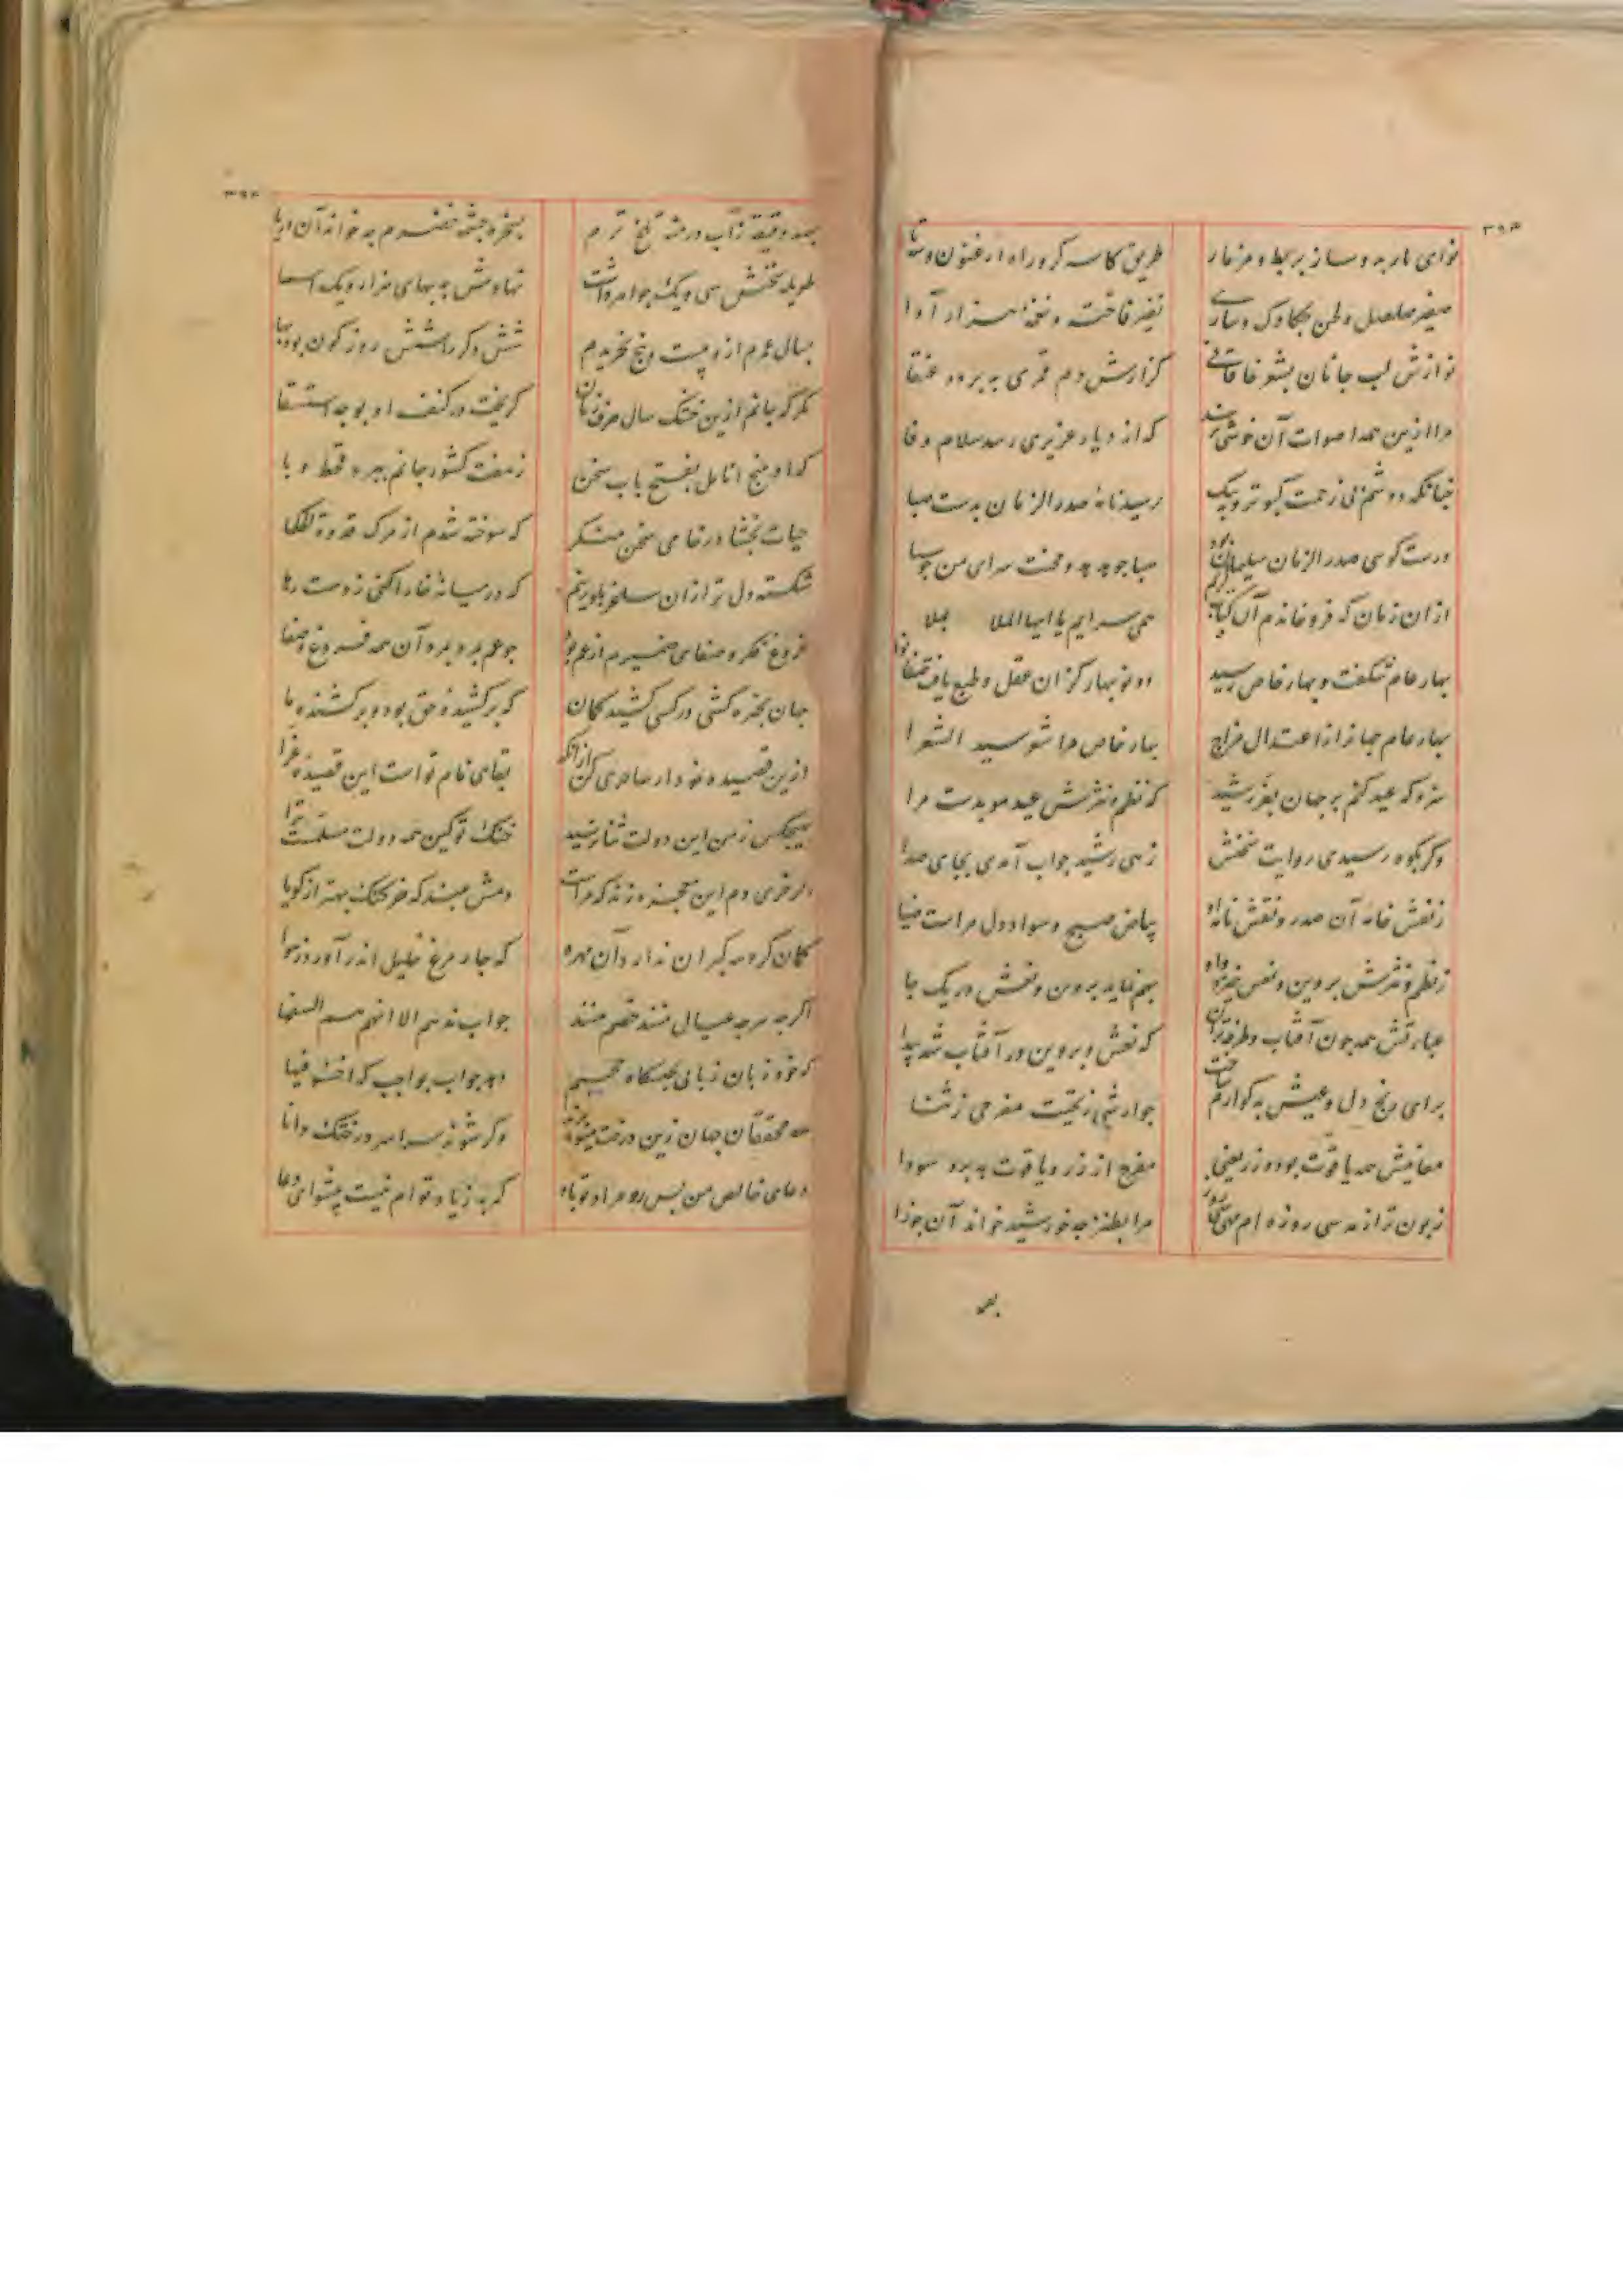 ۳۹۳
نوای باربد و ساز بربط و مزمار
طریق کاسه گر و راه ارغنون و سه تا
صفیر صلصل و لحن چکاوک و ساری
نفیر فاخته و نغمهٔ هزار آوا
نوازش لب جانان بشعر خاقانی
گزارش دم قمری به پرده عنقا
مرا ازین همه اصوات آن خوشی نرسد
که از دیار عزیزی رسد سلام وفا
چنانکه دوشم بی زحمت کبوتر و پیک
رسید نامهٔ صدر الزمان بدست صبا
درست گوئی صدر الزمان سلیمان بود
صبا چو هدهد و محنت سرای من چو سبا
از آن زمان که فرو خواندم آن کتاب کریم
همی سرایم یا ایها الملا بملا
بهار عام شکفت و بهار خاص رسید
دو نوبهار کزان عقل و طبع یافت نوا
بهار عام جهان را ز اعتدال مزاج
بهار خاص مرا شعر سید الشعرا
سزد که عید کنم در جهان بفر رشید
که نظم و نثرش عید مؤبدست مرا
و گر بکوه رسیدی روایت سخنش
زهی رشید جواب آمدی بجای صدا
ز نقش خامه آن صدر و نقش نامه او
بیاض صبح و سواد دل مراست ضیا
ز نظم و نثرش پروین و نعش خیزد و او
بهم نماید پروین و نعش در یک جا
عبارتش همه چون آفتاب و طرفه تر آن
که نعش و پروین در آفتاب شد پیدا
برای رنج دل و عیش بد گوارم ساخت
جوارشی ز تحیت مفرحی ز ثنا
معانیش همه یاقوت بود و زر یعنی
مفرح از زر و یاقوت به برد سودا
زبون تر از مه سی روزه ام مهی سی روز
مرا بطنز چو خورشید خواند آن جوزا
۳۹۴
بصد دقیقه ز آب درمنه تلخ ترم
بسخره چشمه خضرم چو خواند آن دریا
طویله سخنش سی و یک جواهر داشت
نهادمش به بهای هزار و یک اسما
بسال عمرم از او بیست و پنج بخریدم
شش دگر را شش روز کون بود بها
مگر که جانم ازین خشک سال صرف زمان
گریخت در کنف او بوجه استسقا
که او به پنج انامل بفتح باب سخن
ز هفت کشور جانم ببرد قحط و وبا
حیات بخشا در خامی سخن منگر
که سوخته شدم از مرگ قدوة الحکما
شکسته دل تر از آن ساغر بلورینم
که در میانهٔ خارا کنی ز دست رها
فروغ فکر و صفای ضمیرم از عم بود
چو عم بمرد بمرد آن همه فروغ و صفا
جهان بخیره کشی در کسی کشید کمان
که برکشیده حق بود و برکشنده ما
ازین قصیده نمودار ساحری کن از آنک
بقای نام تو است این قصیده غرا
بهیچکس ز من این دولت ثنا نرسید
خنک تو کین همه دولت مسلمست ترا
کمان گروهه گبران ندارد آن مهره
که چار مرغ خلیل اندر آورد ز هوا
اگر چه هر چه عیال منند خصم منند
جواب ندهم الا انهم هم السفها
که خود زبان زبانی بحبسگاه جحیم
دهد جواب بواجب که اخسؤا فیها
محققان جهان زین درخت میوه برند
دعای خالص من پس رو مراد تو باد
که به ز یاد توام نیست پیشوای دعا